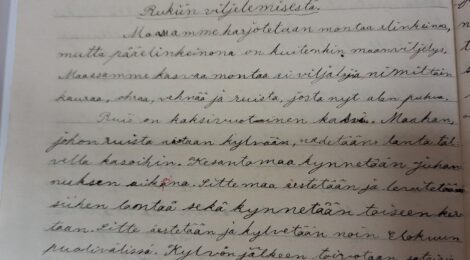 Rukiin viljelemisestä.
Maassamme harjotetaan montaa elinkeinoa,
mutta pääelinkeinona on kuitenkin maanviljelys.
Maassamme kasvaa montaa eri viljalajia nimittäin
kauraa, ohraa, vehnää ja ruista, josta nyt alan puhua.
Ruis on kaksivuotinen kasvi. Maahan,
johon ruista aiotaan kylvään, vedetään lanta tal-
vella kasoihin. Kesantomaa kynnetään juhan
nuksen aikana. Sitte maa äestetään ja levitetään
siihen lantaa sekä kynnetään toiseen ker
taan. Sitte äestetään ja kylvetään noin Elokuun
puolivälissä. Kylvön jälkeen toivotaan